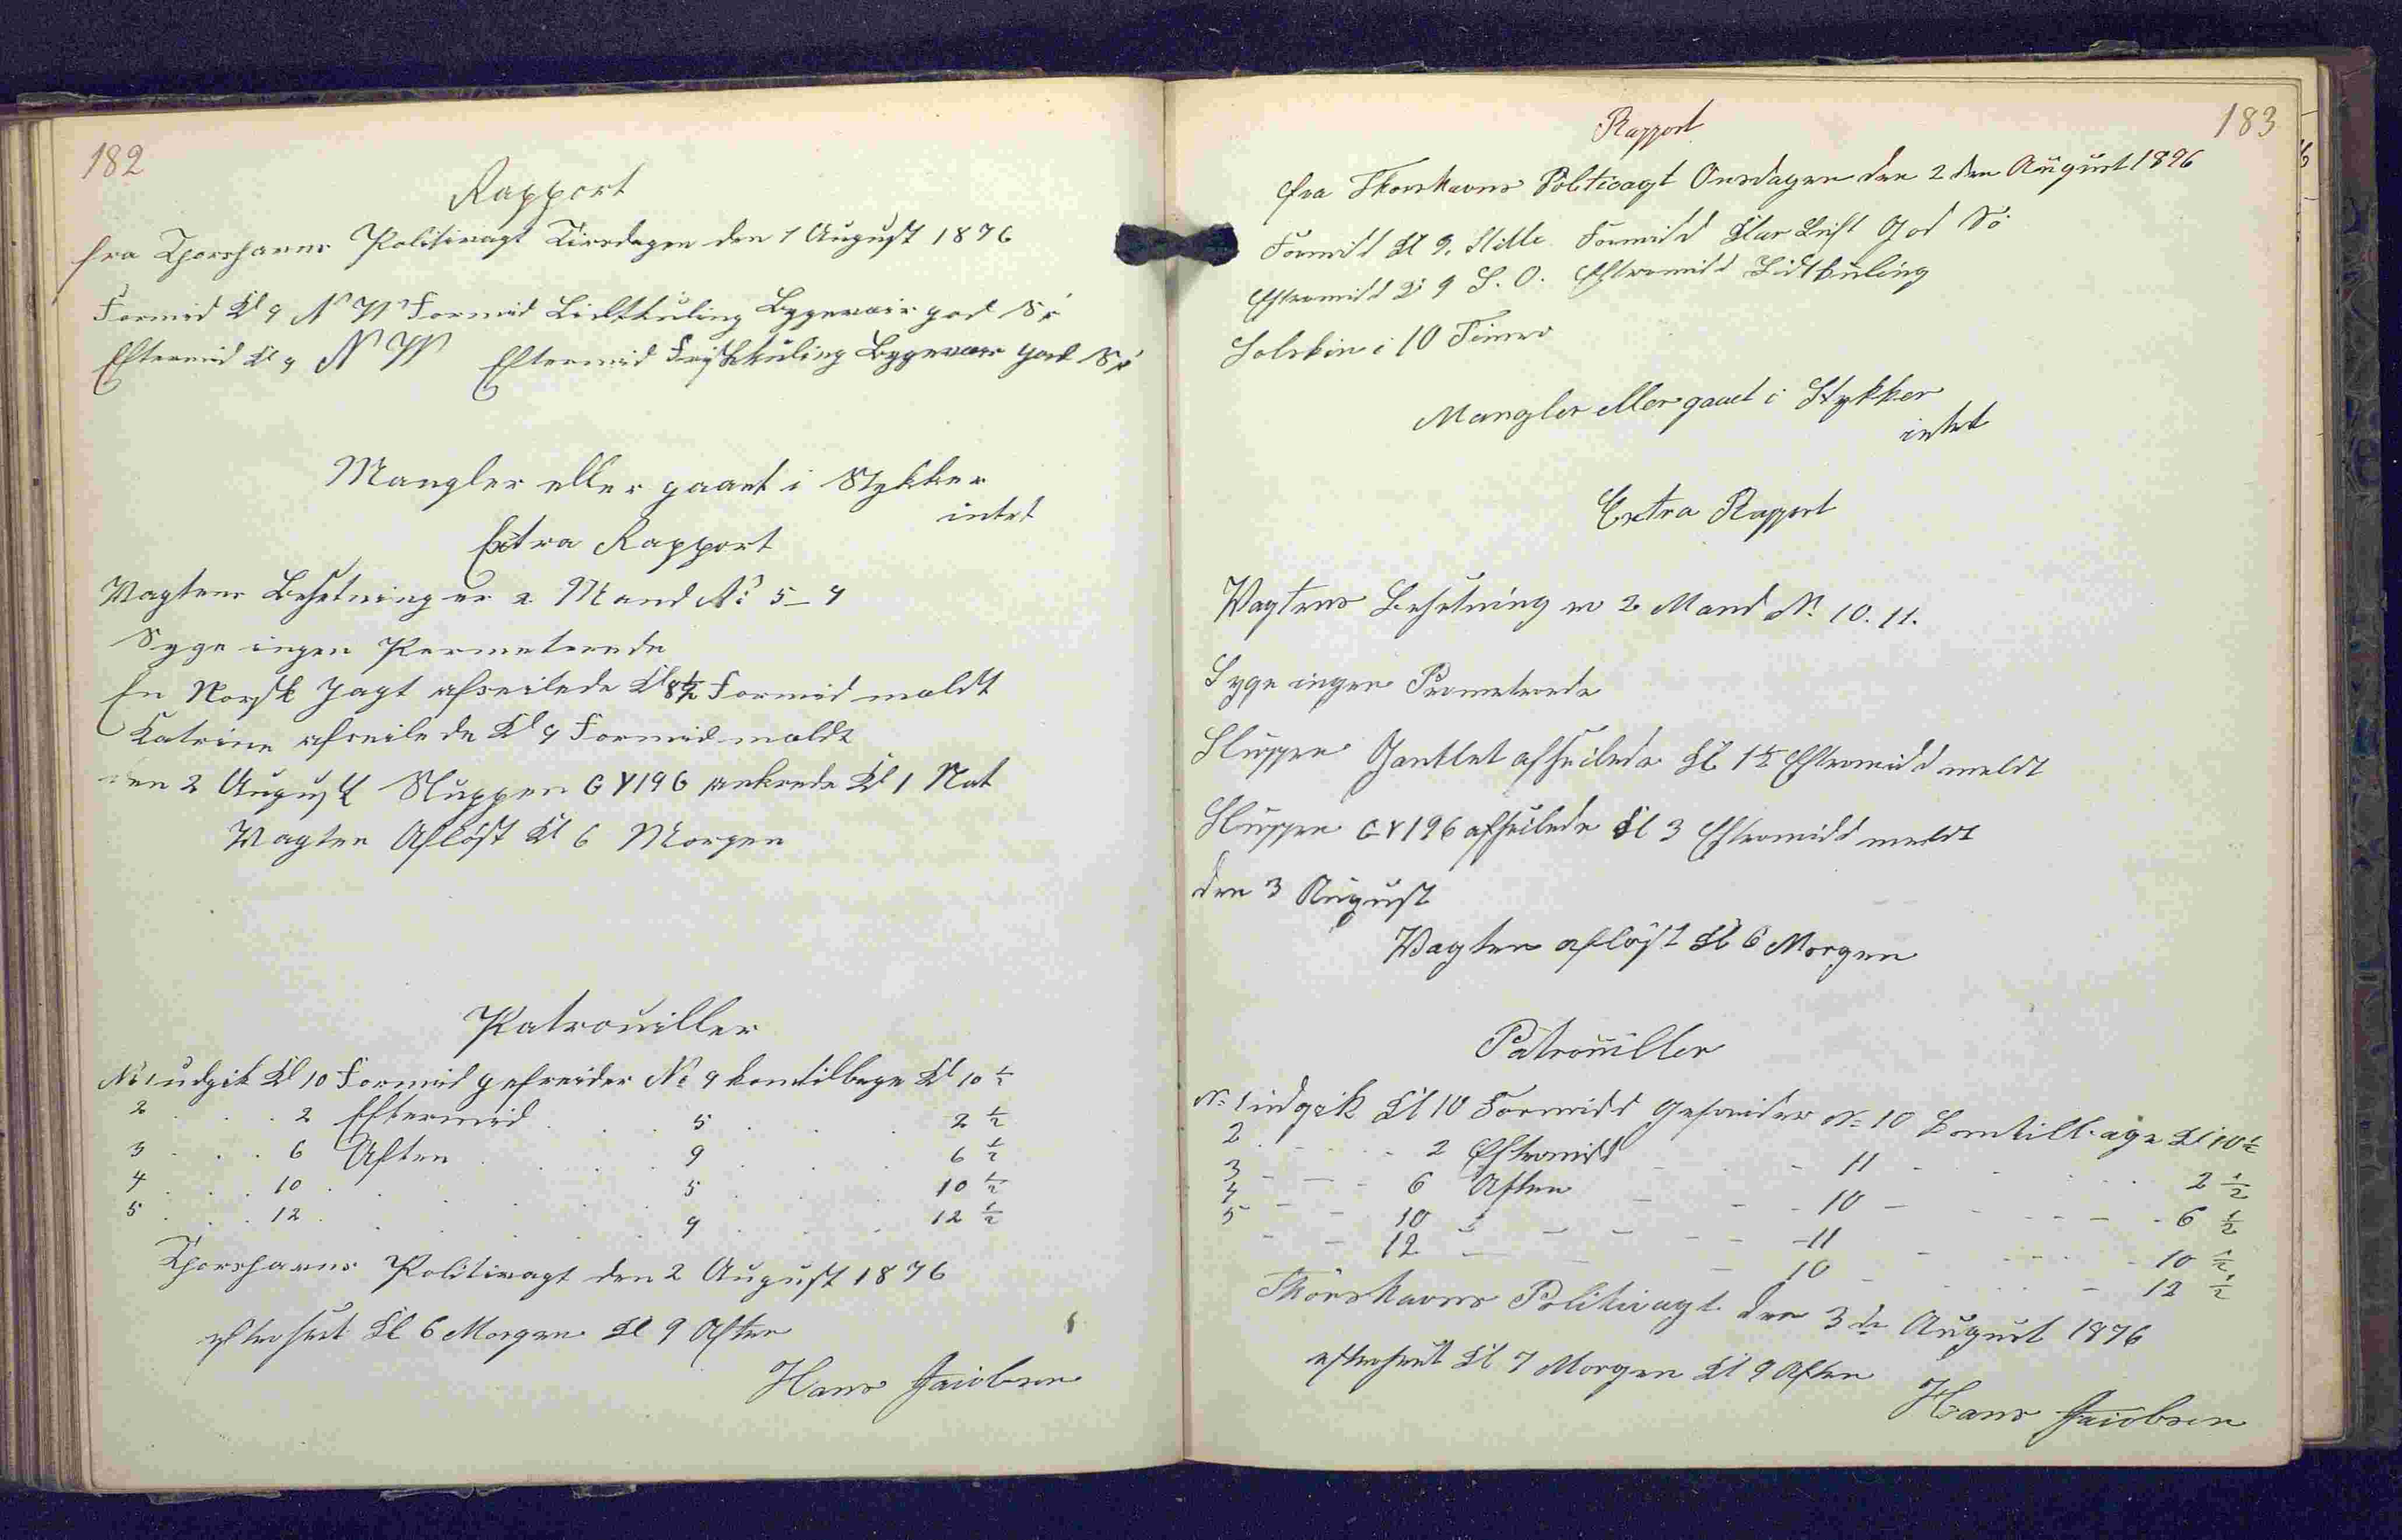 182
Rapport
fra Thorshavns Politivagt Tirsdagen den 1 August 1876
Formid Kl 9 N W Formid Lidtkuling Bygevair god Sö
Eftermid Kl 9 N W Eftermid Friskkuling Bygevair god Sö
Mangler eller gaaet i Stykker
intet
Extra Rapport
Vagtens Besetning er 2 Mand No 5-9
Syge ingen Permeterede
En Norsk Jagt afseilede Kl 8½ Formid meldt
Katrine afseilede Kl 9 Formid meldt
den 2 August Sluppen GY196 ankrede Kl 1 Nat
Vagten Aflöst Kl 6 Morgen
Patrouiller
No 1 udgik Kl 10 Formid gefreider No 9 kom tilbage Kl 10 ½
2 . . . 2 Eftermid . . . 5 . . . 2 ½
3 . . . 6 Aften . . . 9 . . . 6 ½
4 . . . 10 . . . 5 . . . 10 ½
5 . . . 12 . . . 9 . . . 12 ½
Thorshavns Politivagt den 2 August 1876
efterseet Kl 6 Morgen Kl 9 Aften
Hans Jacobsen
183
Rapport
fra Thorshavns Politivagt Onsdagen den 2 den August 1876
Formidd Kl 9. Stille Formidd Klar Luft God Sö
Eftermidd Kl 9 S. O. Eftermidd Lidtkuling
Solskin i 10 Timer
Mangler eller gaaet i Stykker
intet
Extra Rapport
Vagtens Besetning er 2 Mand No 10. 11.
Syge ingen Permeterede
Sluppen Gantlet afseilede Kl. 1½ Eftermidd meldt
Sluppen GY196 afseilede Kl 3 Eftermidd meldt
den 3 August
Vagten aflöst Kl 6 Morgen
Patrouiller
No 1 udgik Kl 10 Formidd Gefreider No 10 Kom tilbage Kl 10 ½
2 - - - 2 Eftermidd - - - 11 - - - 2 ½
3 - - - 6 Aften - - - 10 - - - 6 ½
4 - - - 10 - - - 11 - - - 10 ½
5 - - - 12 - - - 10 - - - 12 ½
Thorshavns Politivagt den 3 de August 1876
efterseet Kl 7 Morgen Kl 9 Aften
Hans Jacobsen